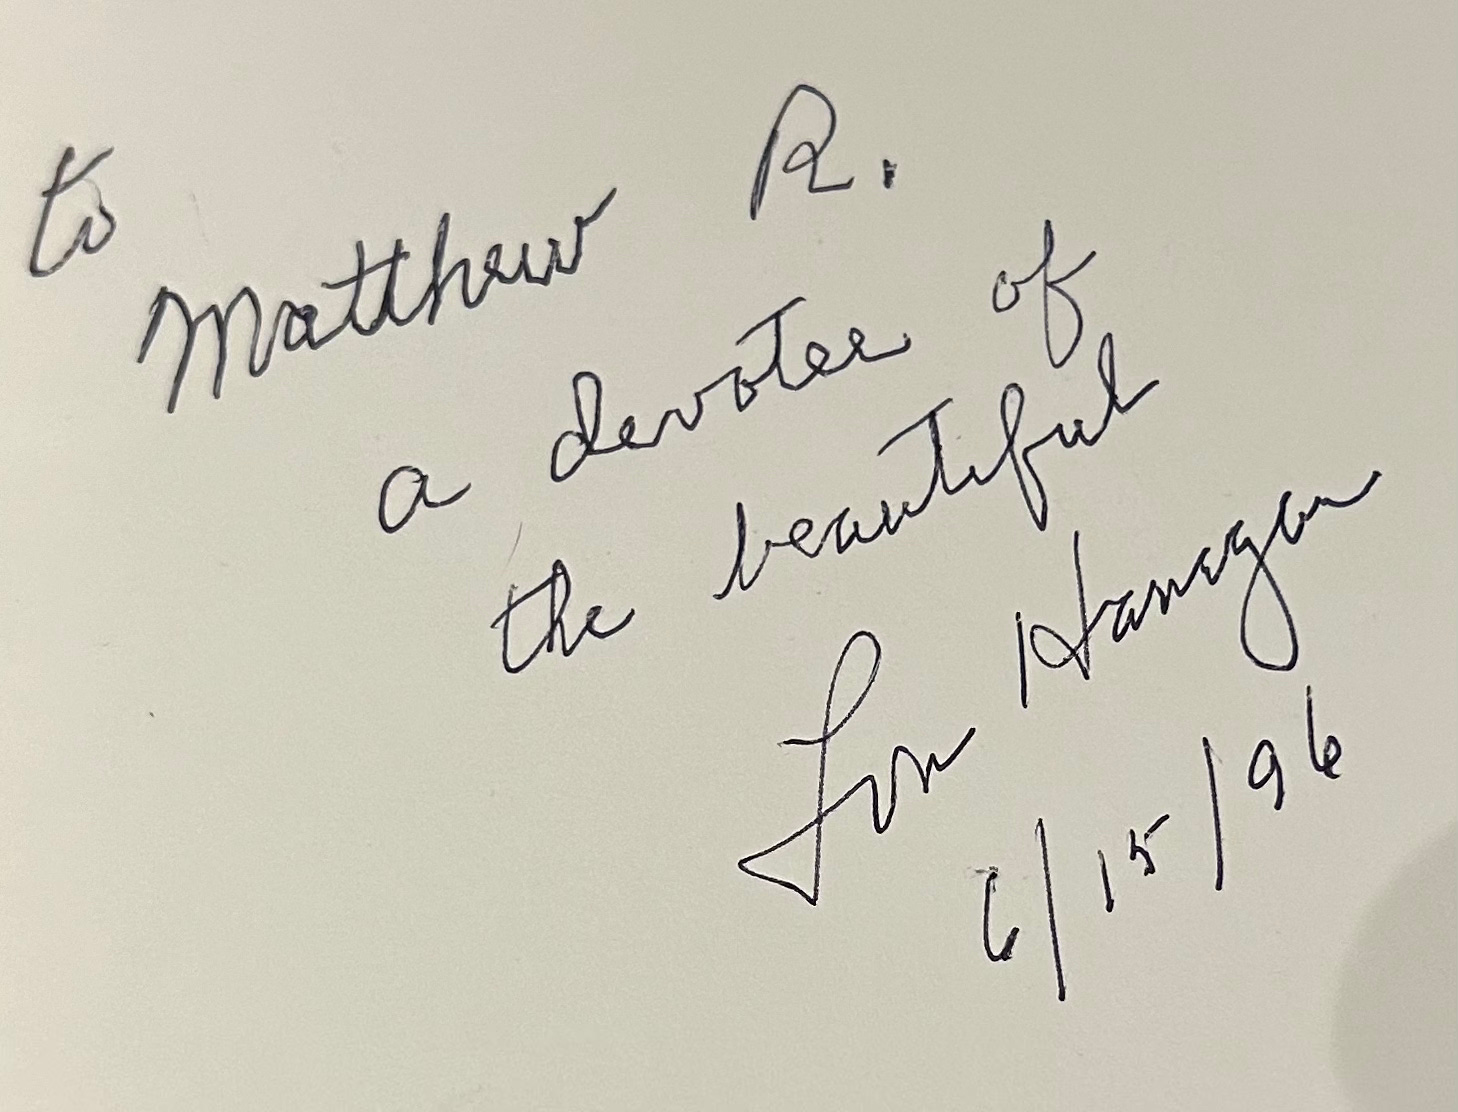 to
Matthew R.
a devotee of
the beautiful
Jim Hanagan
6/15/96